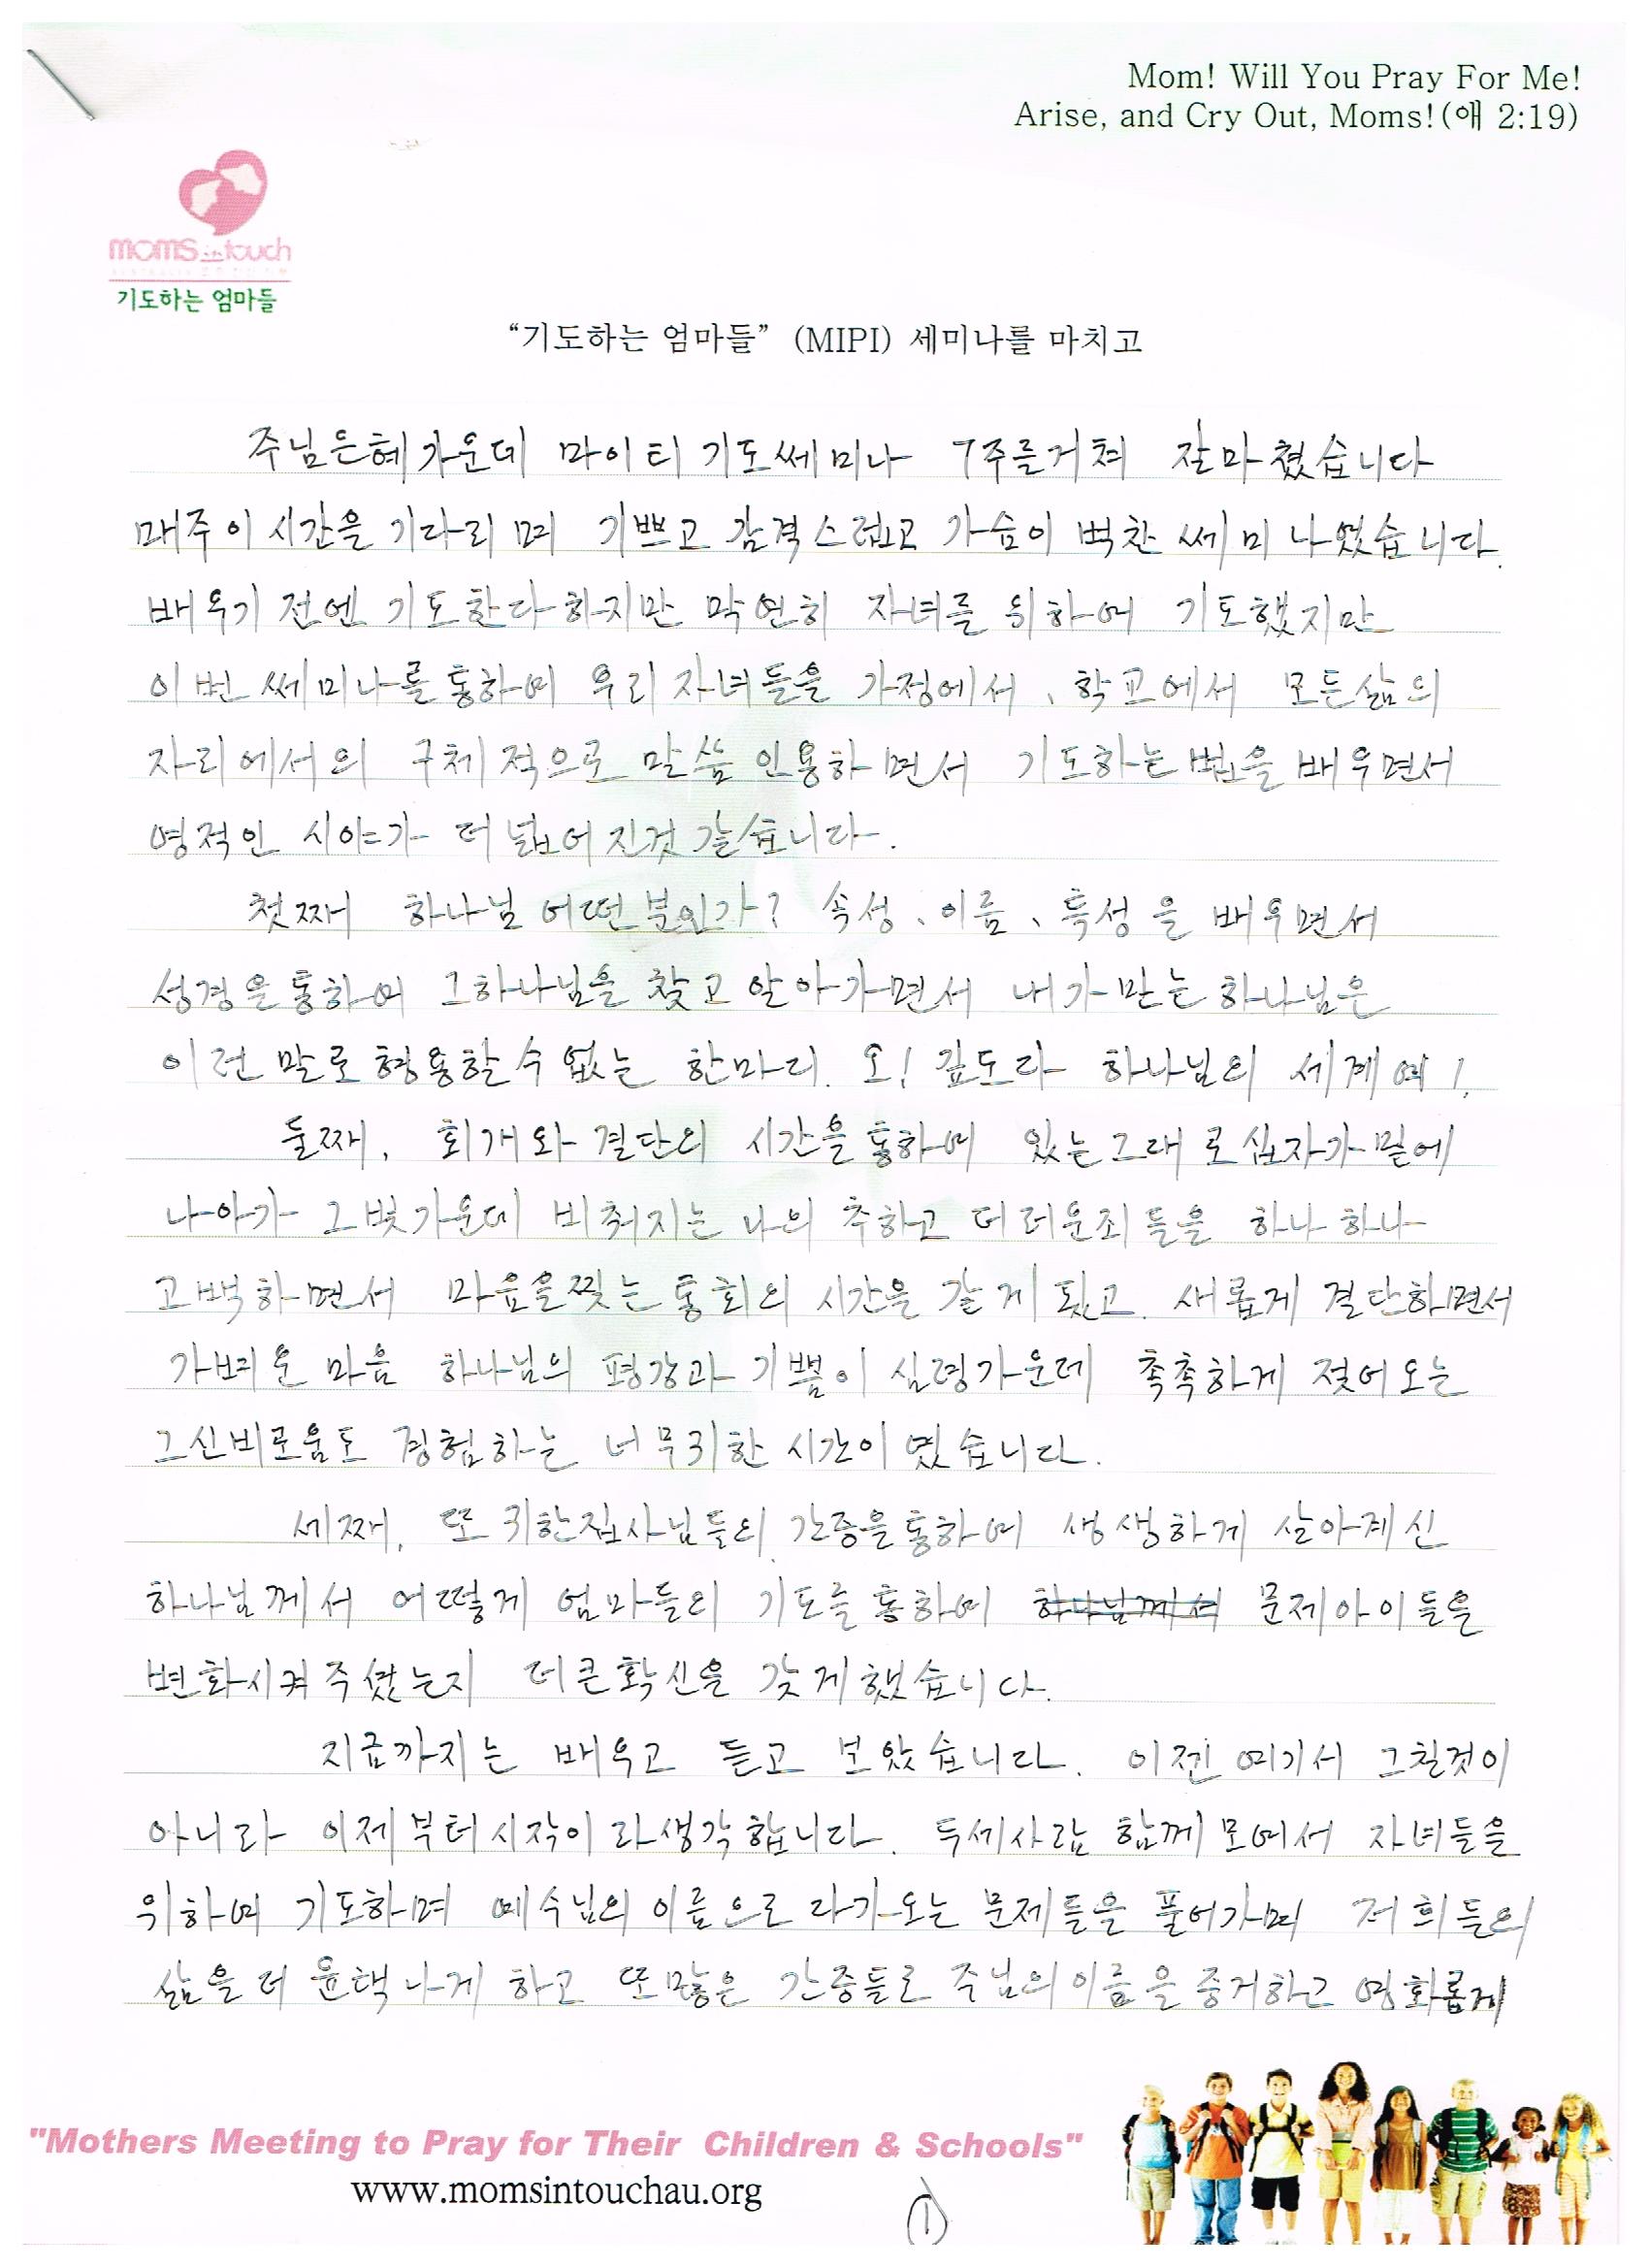 Mom! Will You Pray For Me!
Arise, and Cry Out, Moms!(애 2:19)
moms in touch
기도하는 엄마들
“기도하는 엄마들” (MIPI) 세미나를 마치고
주님은혜가운데 마이티 기도쎄미나 7주를거쳐 잘마쳤습니다
매주이 시간을 기다리며 기쁘고 감격스럽고 가슴이 벅찬 쎄미나였습니다.
배우기 전엔 기도한다하지만 막연히 자녀를 위하여 기도했지만
이번 쎄미나를통하여 우리자녀들을 가정에서, 학교에서 모든삶의
자리에서의 구체적으로 말씀 인용하면서 기도하는법을 배우면서
영적인 시야가 더 넓어진것 같습니다.
첫째 하나님 어떤분인가? 속성, 이름, 특성을 배우면서
성경을통하여 그하나님을 찾고 알아가면서 내가만는하나님은
이런 말로형용할수없는 한마디. 오! 깊도다 하나님의 세계여!
둘째, 회개와 결단의 시간을통하여 있는그대로십자가밑에
나아가 그빛가운데 비춰지는 나의 추하고 더러운죄들을 하나하나
고백하면서 마음을찢는 통회의 시간을 갖게됬고. 새롭게 결단하면서
가벼운 마음 하나님의 평강과 기쁨이 심령가운데 촉촉하게 젖어오는
그신비로움도 경험하는 너무귀한 시간이였습니다.
세째, 또 귀한집사님들의 간증을통하여 생생하게 살아계신
하나님께서 어떻게 엄마들의 기도를통하여 하나님께서 문제아이들을
변화시켜주셨는지 더큰확신을 갖게했습니다.
지금까지는 배우고 듣고 보았습니다. 이젠 여기서 그칠것이
아니라 이제부터시작이라생각합니다. 두세사람 함께모여서 자녀들을
위하여 기도하며 예수님의 이름으로 다가오는 문제들을 풀어가며 저희들의
삶을더 윤택나게 하고 또많은 간증들로 주님의이름을증거하고 영화롭게
"Mothers Meeting to Pray for Their Children & Schools"
www.momsintouchau.org
①